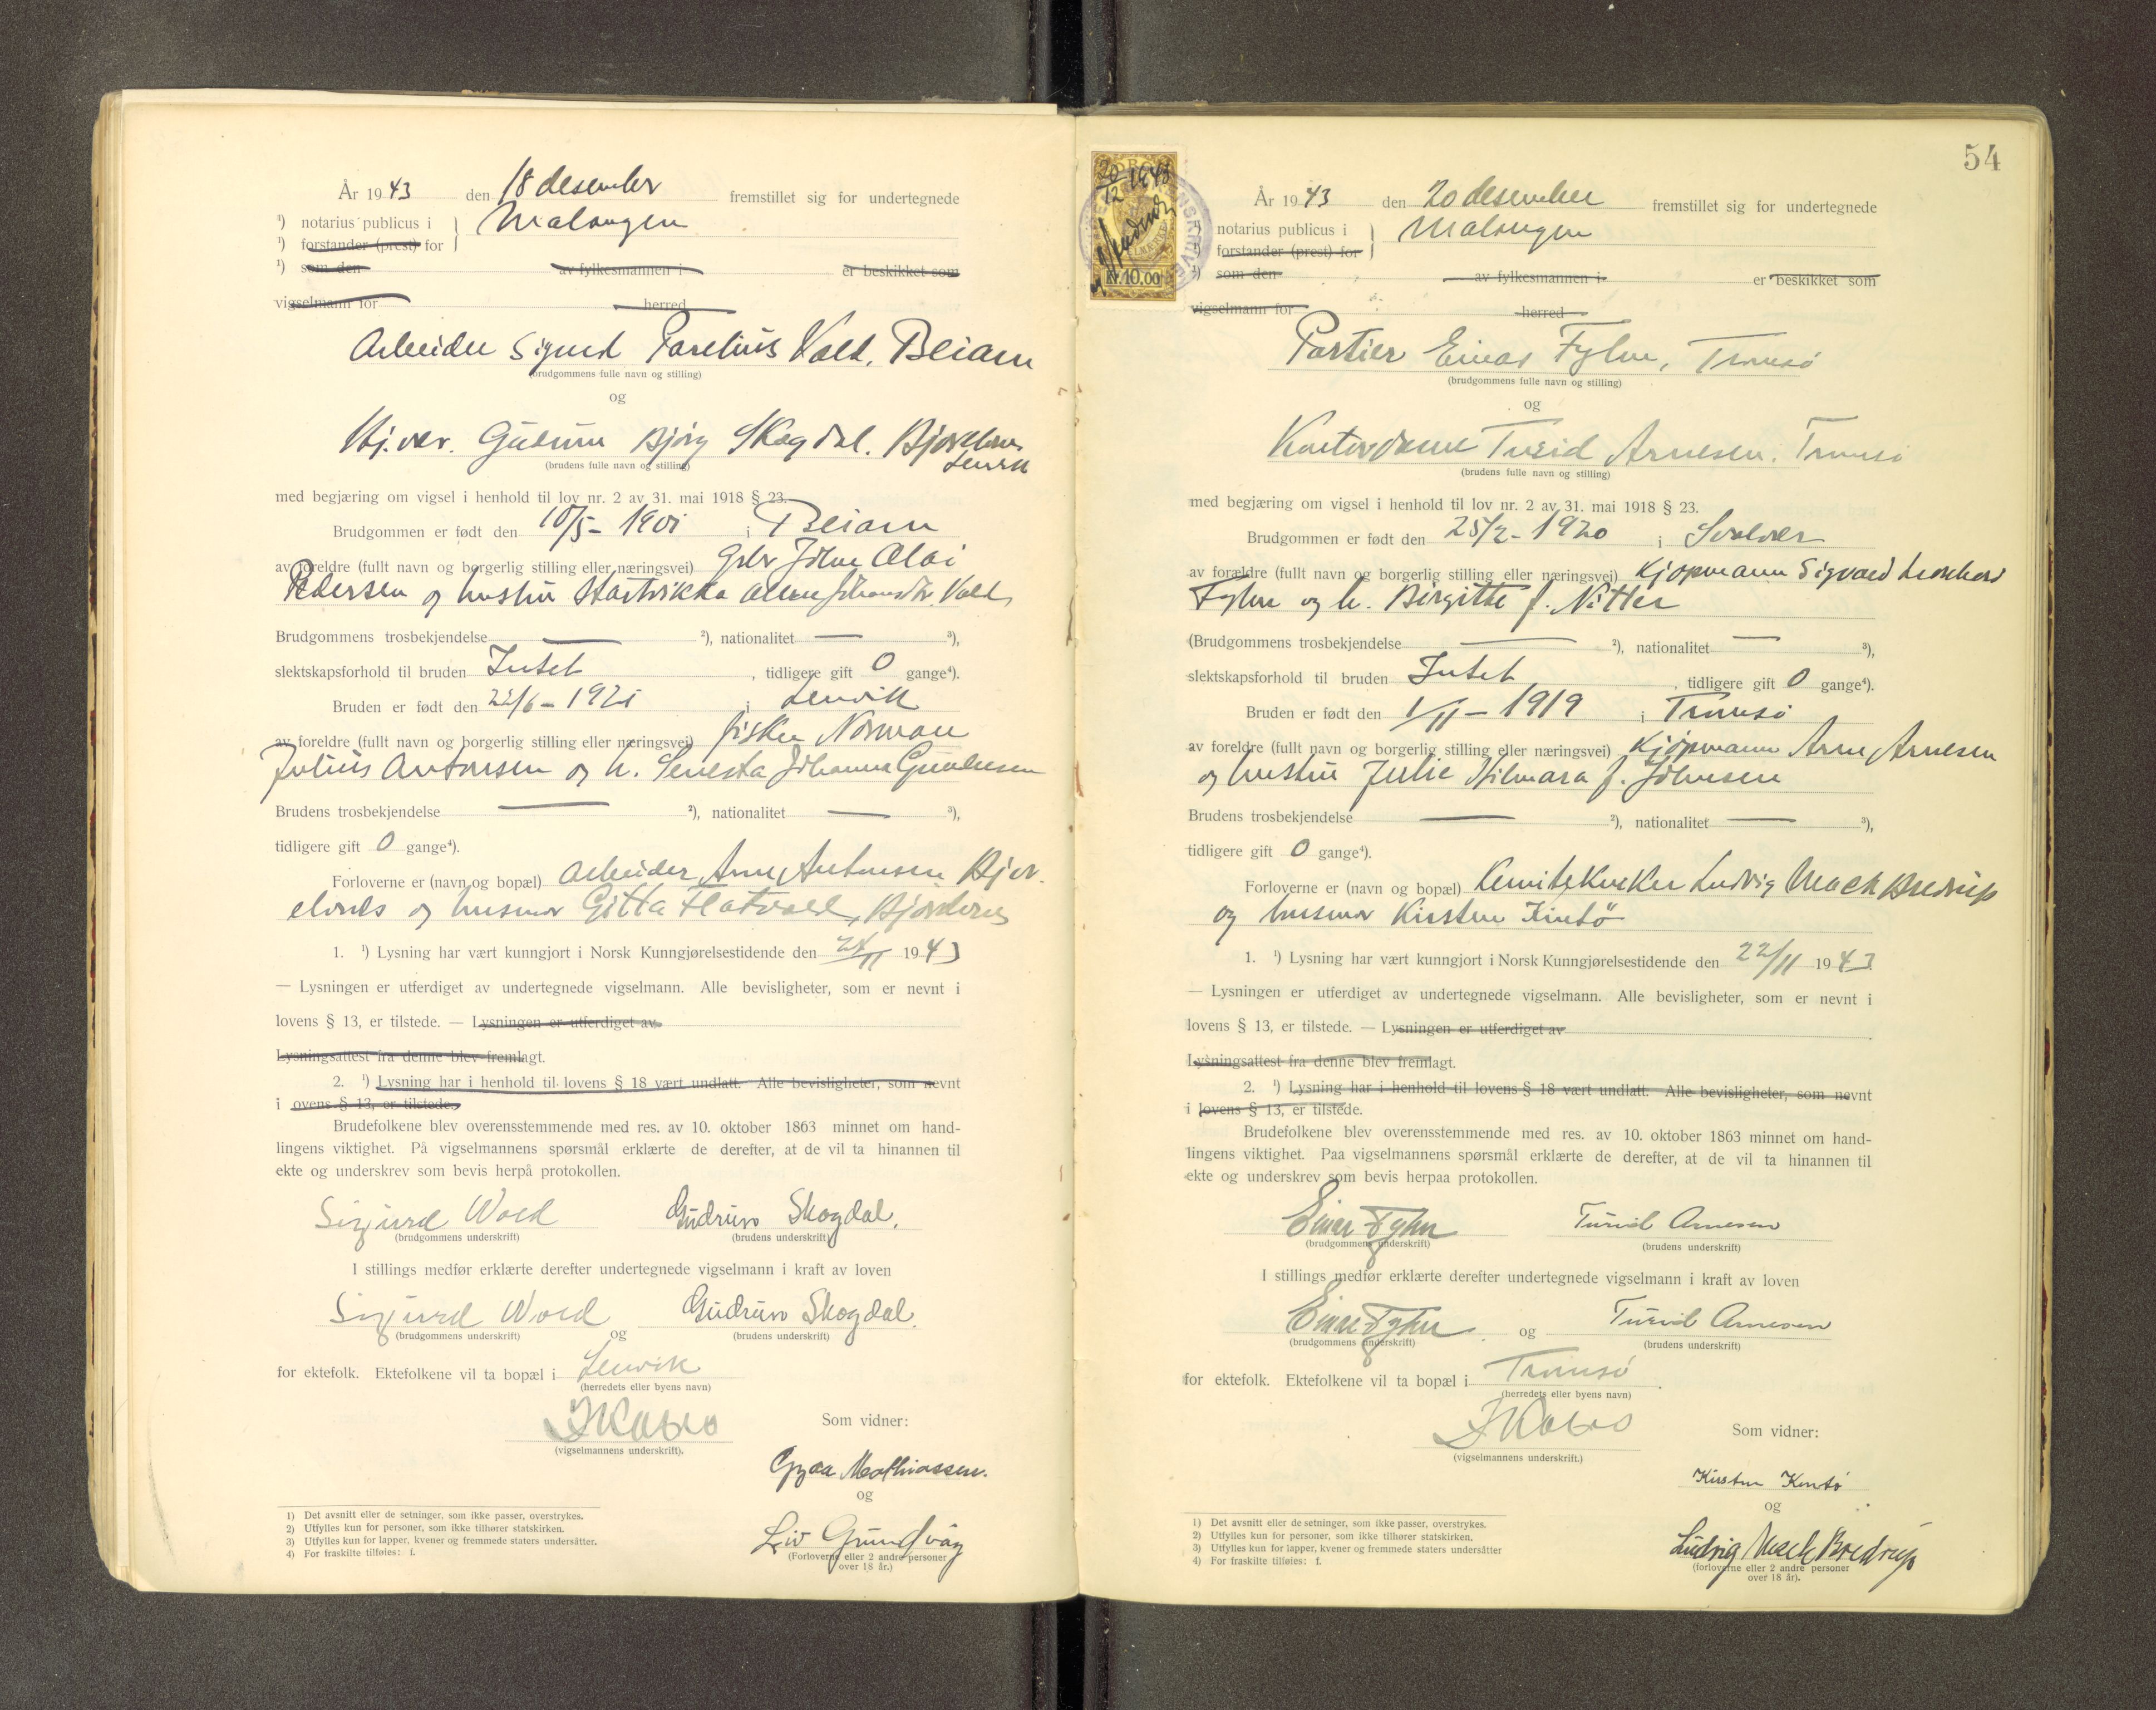 År 1943 den 18 desember fremstillet sig for undertegnede
¹) notarius publicus i } Malangen
¹) forstander (prest) for
¹) som den av fylkesmannen i er beskikket som
vigselmann for herred
Arbeider Sigurd Parelius Vold, Beiarn
(brudgommens fulle navn og stilling)
og
Hj.ver. Gudrun Bjørg Skogdal. Bjorelvnes
Lenvik
(brudens fulle navn og stilling)
med begjæring om vigsel i henhold til lov nr. 2 av 31. mai 1918 § 23.
Brudgommen er født den 10/5 - 1901 i Beiarn
av foreldre (fullt navn og borgerlig stilling eller næringsvei) Johan Olai
Pedersen og hustru Vold
Brudgommens trosbekjendelse — ²), nationalitet — ³),
slektskapsforhold til bruden Intet, tidligere gift 0 gange⁴).
Bruden er født den 22/6 - 1921 i Lenvik
av foreldre (fullt navn og borgerlig stilling eller næringsvei) fisker Norman
Julius Antonsen og h. Johanna
Brudens trosbekjendelse — ²), nationalitet — ³),
tidligere gift 0 gange⁴).
Forloverne er (navn og bopæl) Arbeider Arne Antonsen Bjor-
elvnes og husmor Gitta Flatvold, Bjorelvnes
1. ¹) Lysning har vært kunngjort i Norsk Kunngjørelsestidende den 1943
— Lysningen er utferdiget av undertegnede vigselmann. Alle bevisligheter, som er nevnt i
lovens § 13, er tilstede. — Lysningen er utferdiget av
Lysningsattest fra denne blev fremlagt.
2. ¹) Lysning har i henhold til lovens § 18 vært undlatt. Alle bevisligheter, som nevnt
i ovens § 13, er tilstede.
Brudefolkene blev overensstemmende med res. av 10. oktober 1863 minnet om hand-
lingens viktighet. På vigselmannens spørsmål erklærte de derefter, at de vil ta hinannen til
ekte og underskrev som bevis herpå protokollen.
Sigurd Wold Gudrun Skogdal.
(brudgommens underskrift) (brudens underskrift)
I stillings medfør erklærte derefter undertegnede vigselmann i kraft av loven
Sigurd Wold og Gudrun Skogdal.
(brudgommens underskrift) (brudens underskrift)
for ektefolk. Ektefolkene vil ta bopæl i Lenvik
(herredets eller byens navn)
Som vidner:
(vigselmannens underskrift).
Mathiassen.
og
Liv Grundvåg
(Forloverne eller 2 andre personer
over 18 år.)
1) Det avsnitt eller de setninger, som ikke passer, overstrykes.
2) Utfylles kun for personer, som ikke tilhører statskirken.
3) Utfylles kun for lapper, kvener og fremmede staters undersåtter.
4) For fraskilte tilføies: f.
54
20/12 1943
Kr. 10.00
År 1943 den 20 desember fremstillet sig for undertegnede
notarius publicus i } Malangen
forstander (prest) for
¹) som den av fylkesmannen i er beskikket som
vigselmann for herred
Portier Einar Fyhn, Tromsø
(brudgommens fulle navn og stilling)
og
Kontordame Turid Arnesen. Tromsø
(brudens fulle navn og stilling)
med begjæring om vigsel i henhold til lov nr. 2 av 31. mai 1918 § 23.
Brudgommen er født den 25/2 - 1920 i Svolvær
av forældre (fullt navn og borgerlig stilling eller næringsvei) Kjøpmann Sigvard Leonhard
Fyhn og h. Birgitte f. Nitter
(Brudgommens trosbekjendelse — ²), nationalitet — ³),
slektskapsforhold til bruden Intet, tidligere gift 0 gange⁴).
Bruden er født den 1/11 - 1919 i Tromsø
av foreldre (fullt navn og borgerlig stilling eller næringsvei) Kjøpmann Arne Arnesen
og hustru Julie Hilmara f. Johnsen
Brudens trosbekjendelse — ²), nationalitet — ³),
tidligere gift 0 gange⁴).
Forloverne er (navn og bopæl) Ludvig Mack Bredrup
og husmor Kirsten Kintø
1. ¹) Lysning har vært kunngjort i Norsk Kunngjørelsestidende den 22/11 1943
— Lysningen er utferdiget av undertegnede vigselmann. Alle bevisligheter, som er nevnt i
lovens § 13, er tilstede. — Lysningen er utferdiget av
Lysningsattest fra denne blev fremlagt.
2. ¹) Lysning har i henhold til lovens § 18 vært undlatt. Alle bevisligheter, som nevnt
i lovens § 13, er tilstede.
Brudefolkene blev overensstemmende med res. av 10. oktober 1863 minnet om hand-
lingens viktighet. Paa vigselmannens spørsmål erklærte de derefter, at de vil ta hinannen til
ekte og underskrev som bevis herpaa protokollen.
Einar Fyhn Turid Arnesen
(brudgommens underskrift) (brudens underskrift)
I stillings medfør erklærte derefter undertegnede vigselmann i kraft av loven
Einar Fyhn og Turid Arnesen
(brudgommens underskrift) (brudens underskrift)
for ektefolk. Ektefolkene vil ta bopæl i Tromsø
(herredets eller byens navn)
Som vidner:
(vigselmannens underskrift.)
Kirsten Kintø
og
Ludvig Mack Bredrup
(forloverne eller 2 andre personer
over 18 år).
1) Det avsnitt eller de setninger, som ikke passer, overstrykes.
2) Utfylles kun for personer, som ikke tilhører statskirken.
3) Utfylles kun for lapper, kvener og fremmede staters undersåtter
4) For fraskilte tilføies: f.